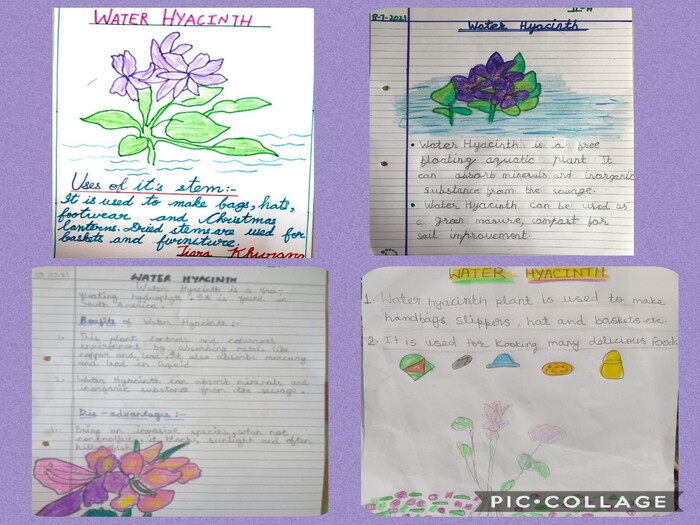 WATER HYACINTH
Uses of it's stem:-
It is used to make bags, hats,
footwear and Christmas
lanterns. Dried stems are used for
baskets and furniture.
Tiara Khurana
8-7-2021
Water Hyacinth
• Water Hyacinth is a free
floating aquatic plant It
can absorb minerals and inorganic
substance from the sewage.
• Water Hyacinth can be used as
a green manure, compost for
soil improvement
WATER HYACINTH
Water Hyacinth is a free-
floating hydrophyte. It is found in
South America.
Benefits of Water Hyacinth:-
1. This plant controls and conserves
environment by absorbing metals like
copper and lead. It also absorbs mercury
and lead in liquid.
2. Water Hyacinth can absorb minerals and
inorganic substance from the sewage.
Dis-advantages:-
1. Being an invasive species, when not
controlled, it blocks sunlight and often
kills fish
WATER HYACINTH
1. Water hyacinth plant is used to make
handbags, slippers, hat and baskets.etc.
2. It is used for kooking many delicious food.
PIC•COLLAGE